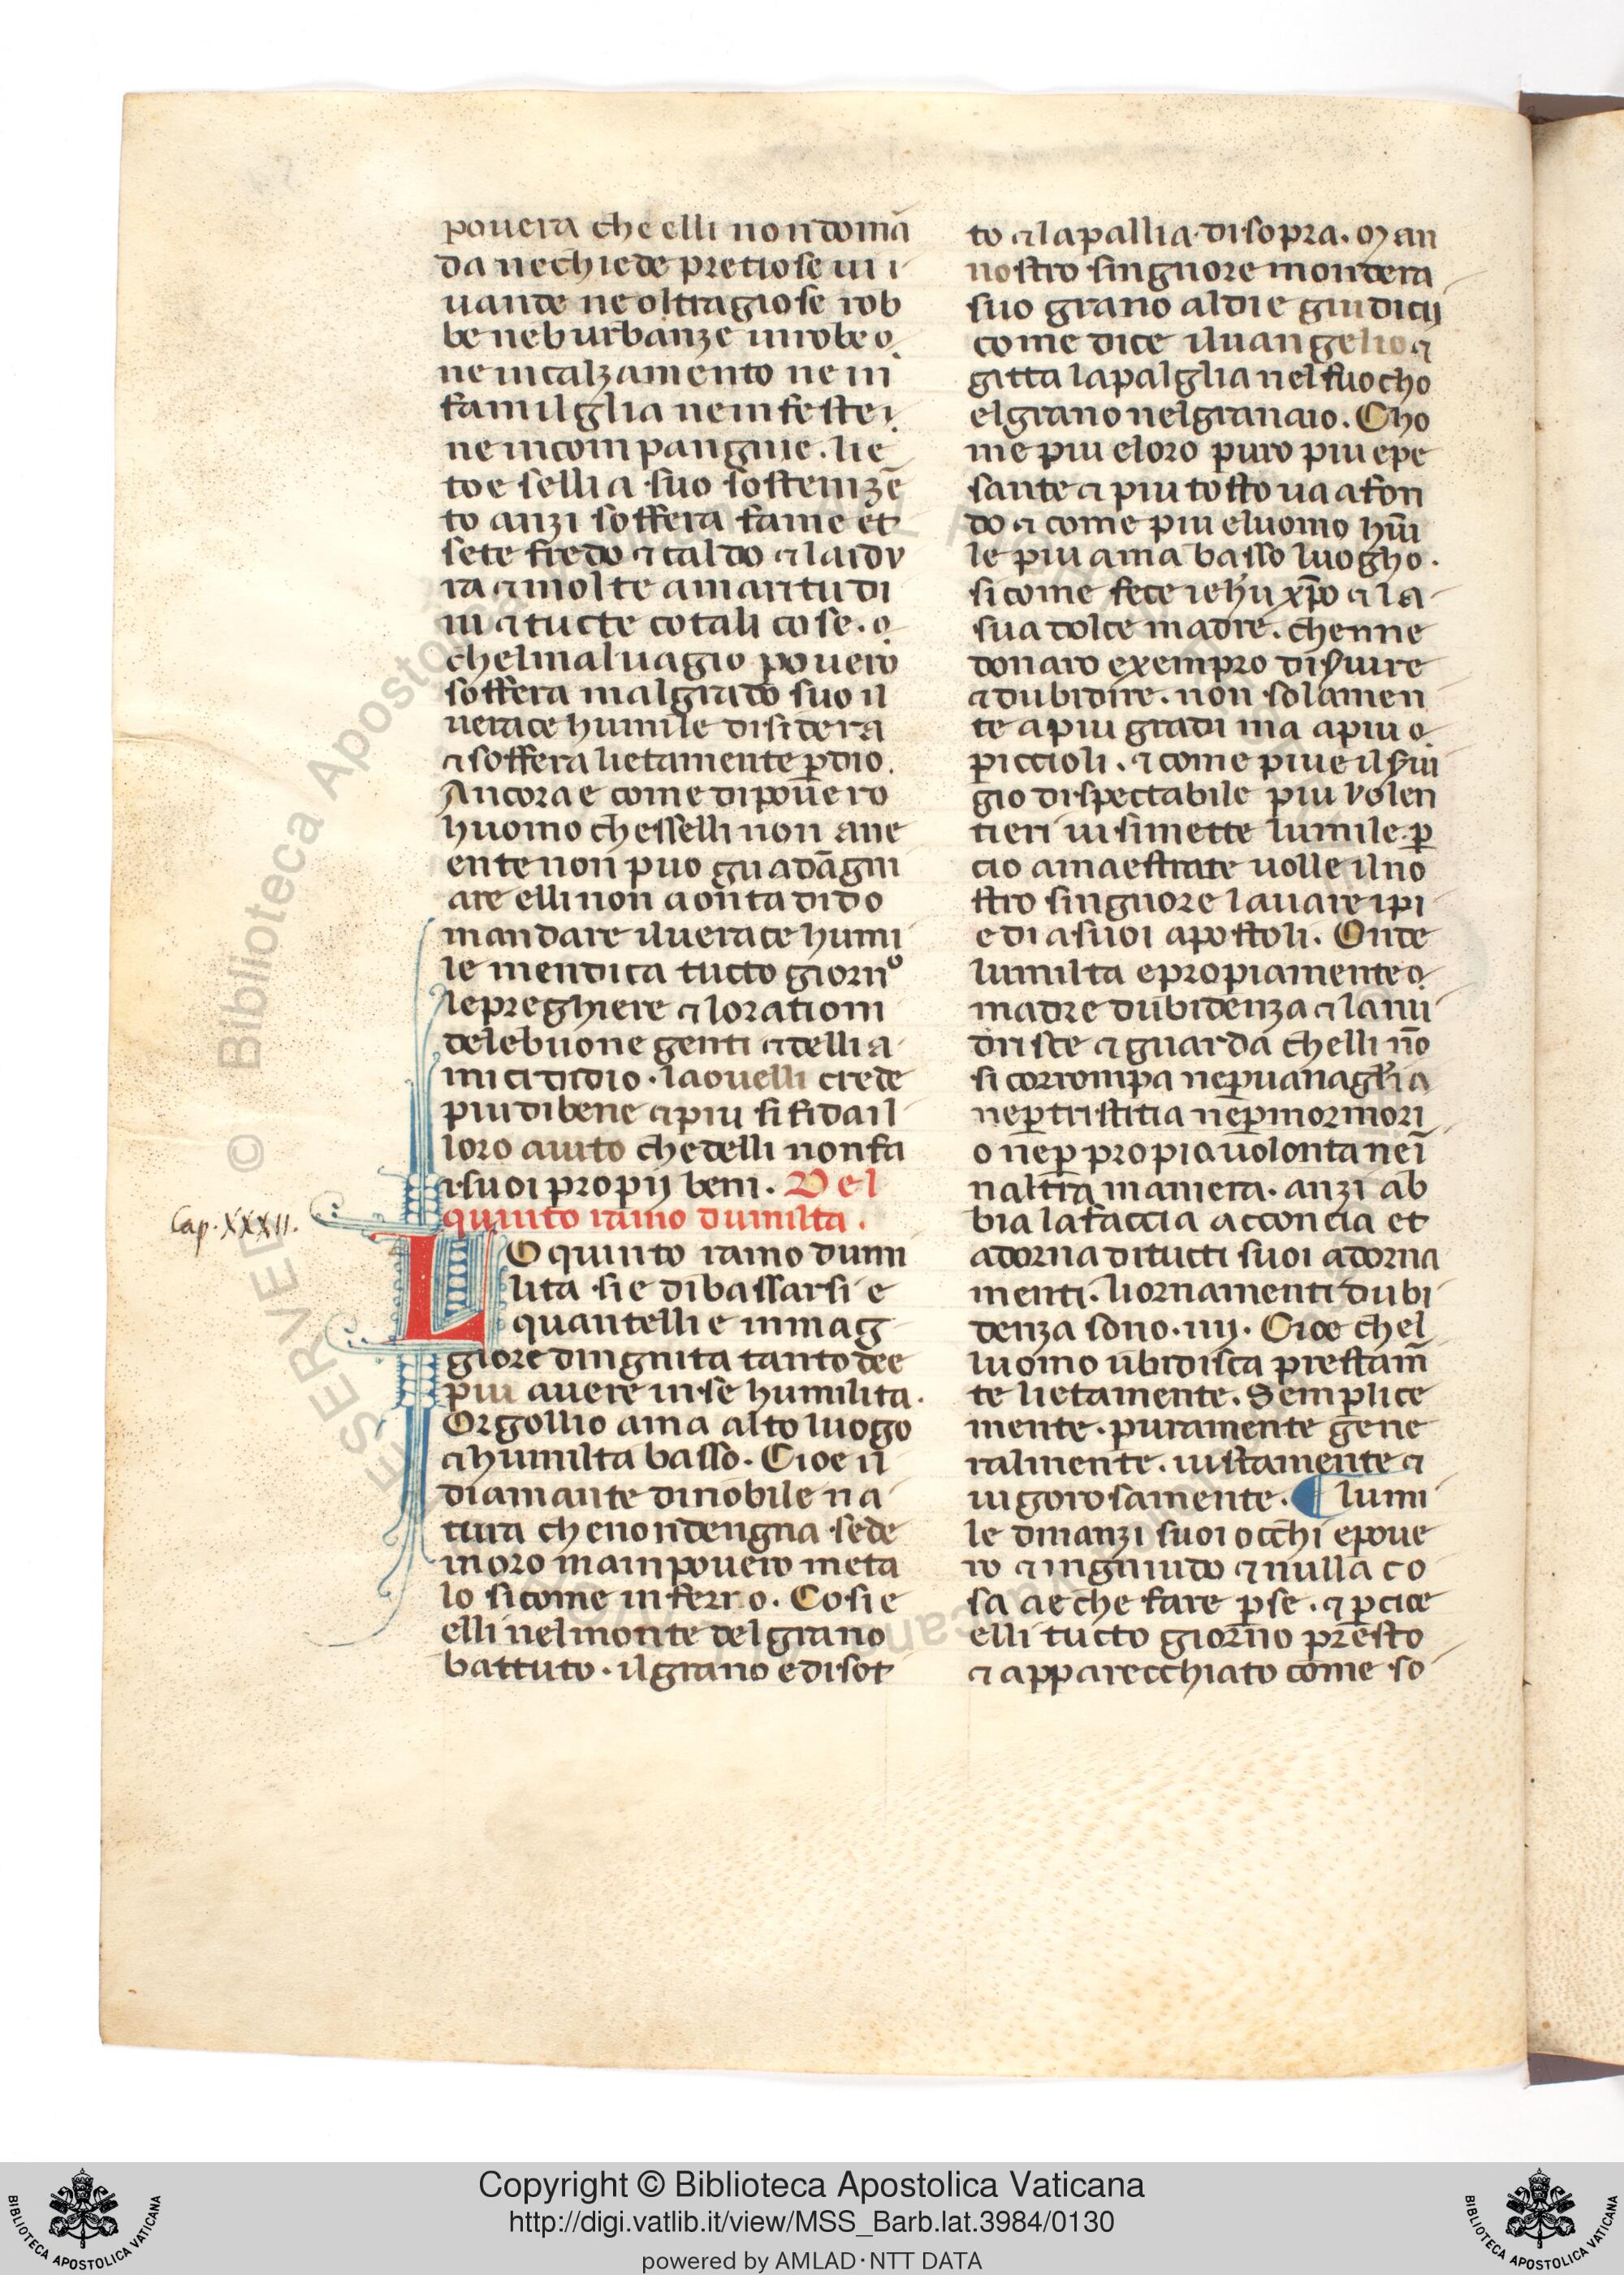 pouera che elli non domā
da ne chiede pretiose ui i
uande ne oltragiose rob
be ne burbanze in robe o
ne in calzamento ne in
familglia ne in feste i
ne in compangnie. lie
to e selli a suo sostenizē
to anzi soffera fame et
sete fredo ⁊ caldo ⁊ laidu
ra ⁊ molte amaritudi
ni ⁊ tucte cotali cose. o
chel maluagio pouero
soffera malgrado suo il
uerace humile disidera
⁊ soffera lietamente ꝑ dio.
Ancora e come di pouero
huomo chesselli non a ne
ente non puo guadāgni
are elli non a onta di do
mandare il uerace humi
le mendica tucto giorno
le preghiere ⁊ lorationi
dele buone genti ⁊ delli a
mici di dio. la ouelli crede
piu di bene ⁊ piu si fida il
loro aiuto che delli non fa
i suoi propij beni. Del
quinto ramo dumilta.
Cap. XXXII.
LO quinto ramo dumi
lita si e dibassarsi e
quantelli e in mag
giore dingnita tanto dee
piu auere in se humilita.
Orgollio ama alto luogo
⁊ humilta basso. Cioe il
diamante di nobile na
tura che non dengna sede
in oro ma in pouero meta
lo si come in ferro. Cosi e
elli nel monte del grano
battuto. il grano e di sot
to ⁊ la pallia di sopra. Man
nostro singnore mondera
suo grano al die giudicij
come dice il uangelio ⁊
gitta la palglia nel fuocho
el grano nel granaio. Cho
me piu e loro puro piu e pe
sante ⁊ piu tosto ua a fon
do ⁊ come piu e luomo hūi
le piu ama basso luogho.
si come fece iehū xp̄o ⁊ la
sua dolce madre. chenne
donaro exempro di ẜuire
⁊ dubidire. non solamen
te a piu gradi ma a piu o
piccioli. ⁊ come piu e il ẜui
gio dispectabile piu volen
tieri ui si mette lumile. ꝑ
cio amaestrare uolle il no
stro singnore lauare i pi
edi a suoi apostoli. Onde
lumilta e propiamente o
madre dubidenza ⁊ la nu
drisce ⁊ guarda chelli nō
si corrompa ne ꝑ uanagl̄ia
ne ꝑ tristitia ne ꝑ mormori
o ne ꝑ propia uolonta ne ī
naltra maniera. anzi ab
bia la faccia acconcia et
adorna di tucti suoi adorna
menti. li ornamenti dubi
denza sono. iiij. Cioe chel
luomo ubidisca prestam̄
te lietamente. Semplice
mente. puramente gene
ralmente. iustamente ⁊
uigorosamente. ¶ lumi
le dinanzi suoi occhi e poue
ro ⁊ ingnudo ⁊ nulla co
sa a e che fare ꝑ se. ⁊ ꝑ cioe
elli tucto giorno presto
⁊ apparecchiato come so
Copyright © Biblioteca Apostolica Vaticana
http://digi.vatlib.it/view/MSS_Barb.lat.3984/0130
powered by AMLAD·NTT DATA
BIBLIOTECA APOSTOLICA VATICANA
BIBLIOTECA APOSTOLICA VATICANA